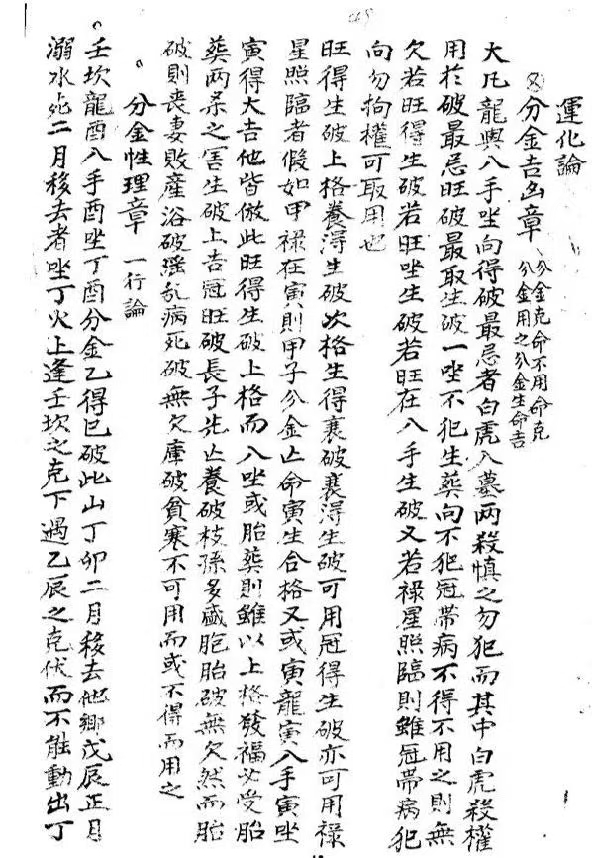 運化論
分金吉凶章 分金克命不用命克
分金用之分金生命吉
大凡龍與八手坐向得破最忌者白虎入墓两殺慎之勿犯而其中白虎殺權
用於破最忌旺破最取生破一坐不犯生葬向不犯冠帯病不得不用之則無
欠若旺得生破若旺坐生破若旺在八手生破又若禄星照臨則雖冠帯病犯
向勿拘權可取用也
旺得生破上格養得生破次格生得衰破衰得生破可用冠得生破亦可用禄
星照臨者假如甲禄在寅則甲子分金亡命寅生合格又或寅龍寅入手寅坐
寅得大吉他皆倣此旺得生破上格而入坐或胎葬則雖以上格發福必受胎
葬两杀之害生破上吉冠旺破長子先亡養破枝孫多盛胞胎破無欠然而胎
破則喪妻敗産浴破淫乱病死破無欠庫破貧寒不可用而或不得而用之
分金性理章 一行論
壬坎龍酉八手酉坐丁酉分金乙得巳破此山丁卯二月移去他鄉戊辰正月
溺水死二月移去者坐丁火上逢壬坎之克下遇乙辰之克伏而不能動出丁